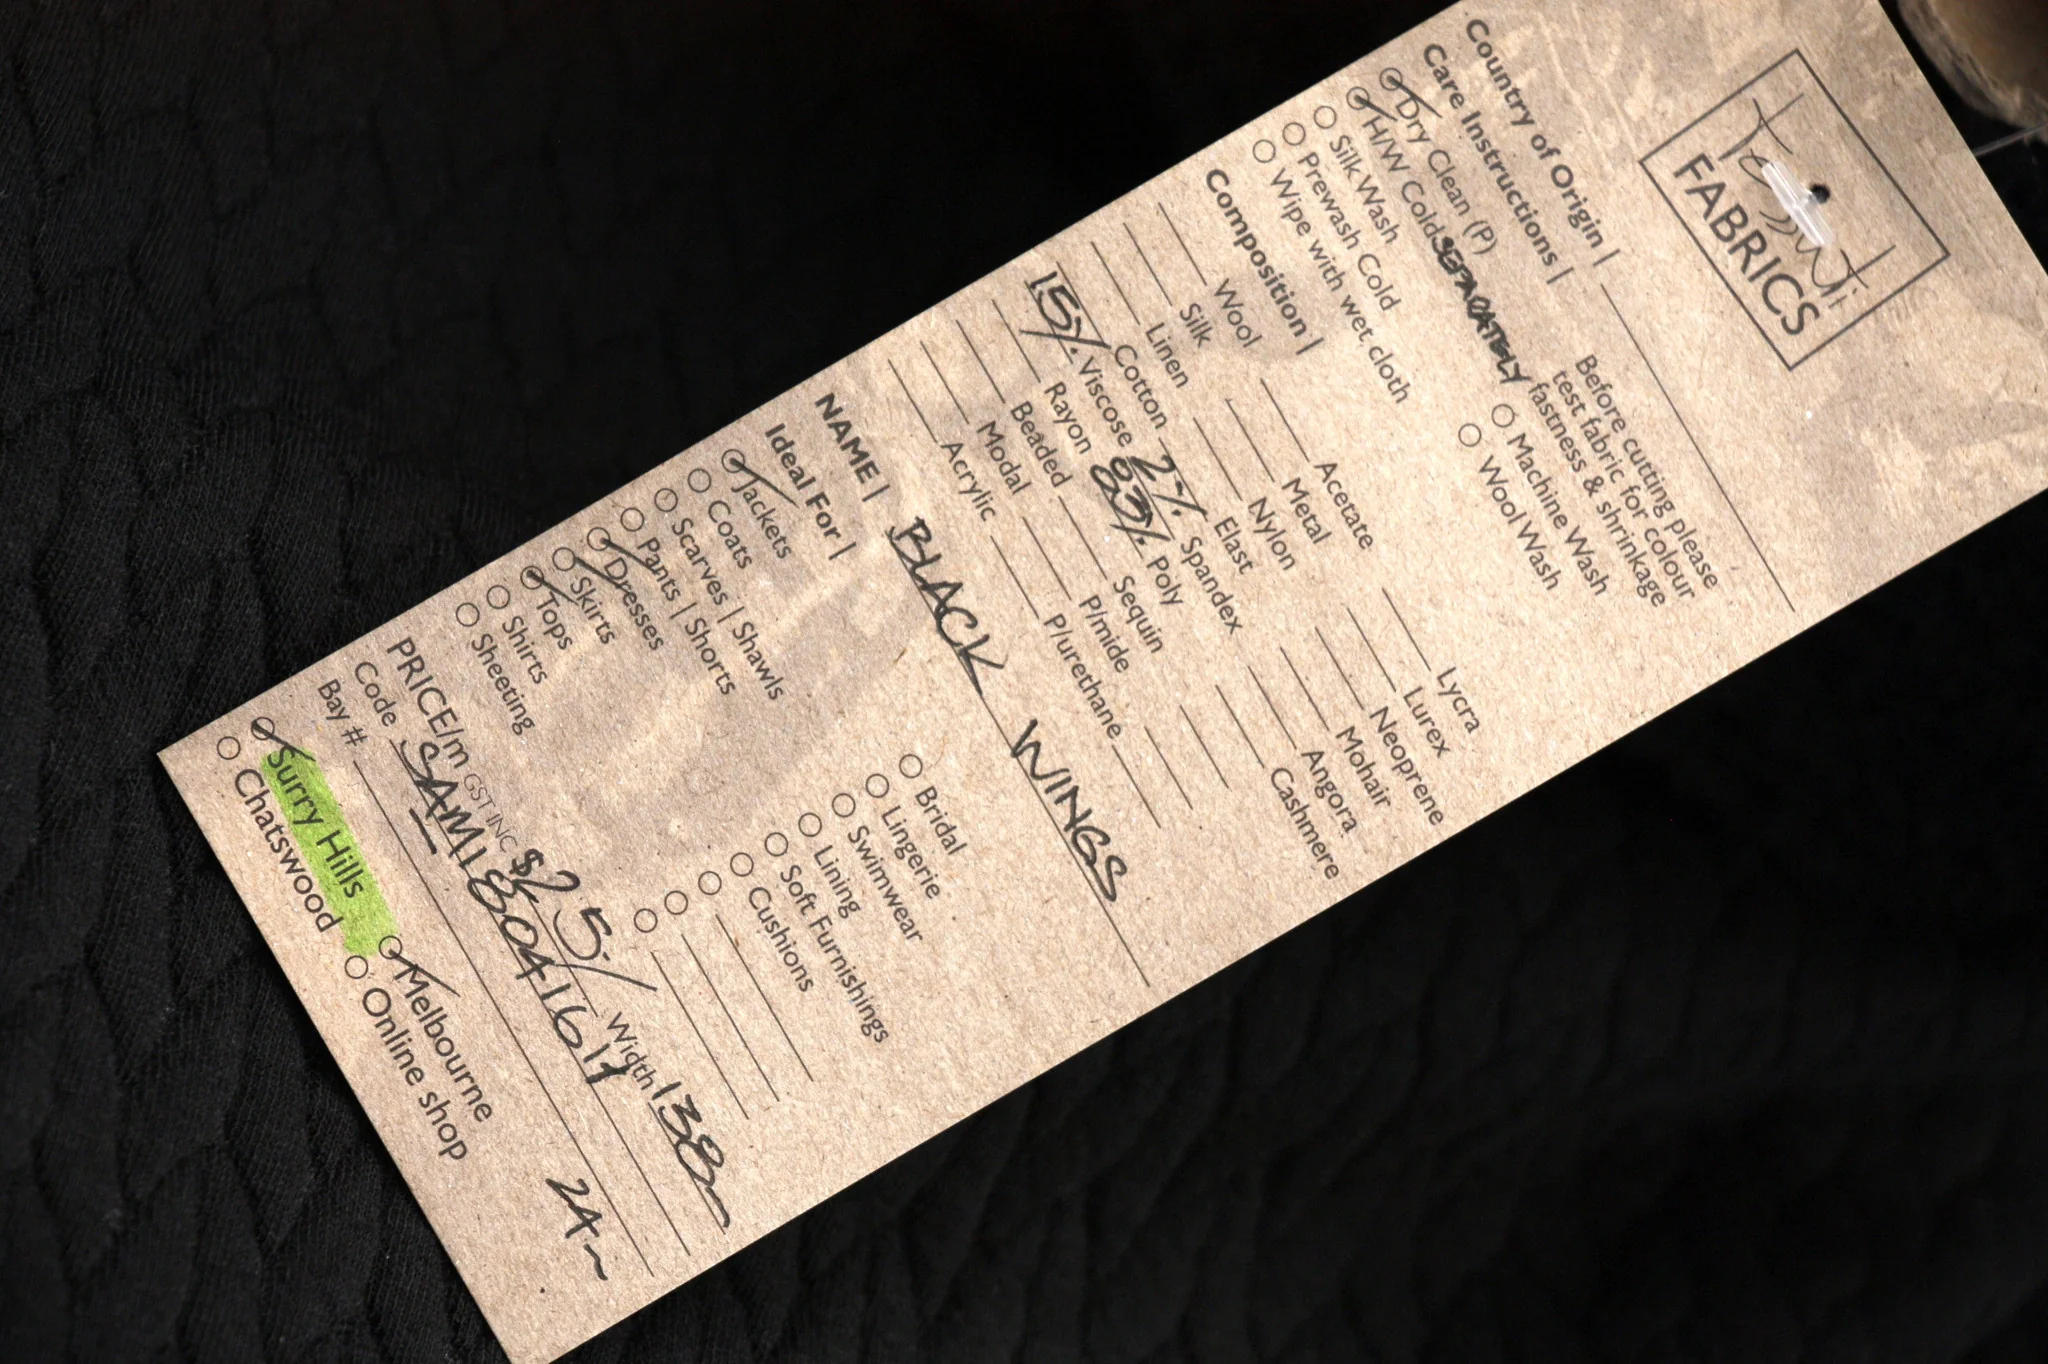 Tessuti
FABRICS
Country of Origin |
Care Instructions |
Before cutting please
test fabric for colour
fastness & shrinkage
Dry Clean (P)
H/W Cold SEPARATELY
Silk Wash
Prewash Cold
Wipe with wet cloth
Machine Wash
Wool Wash
Composition |
Wool
Silk
Linen
Cotton
15% Viscose
Rayon
Beaded
Modal
Acrylic
Acetate
Metal
Nylon
Elast
2% Spandex
83% Poly
Sequin
P/mide
P/urethane
Lycra
Lurex
Neoprene
Mohair
Angora
Cashmere
NAME | BLACK WINGS
Ideal For |
Jackets
Coats
Scarves | Shawls
Pants | Shorts
Dresses
Skirts
Tops
Shirts
Sheeting
Bridal
Lingerie
Swimwear
Lining
Soft Furnishings
Cushions
PRICE/m GST INC $25/ Width 138
Code SAM18041617
Bay # 24
Surry Hills
Chatswood
Melbourne
Online shop